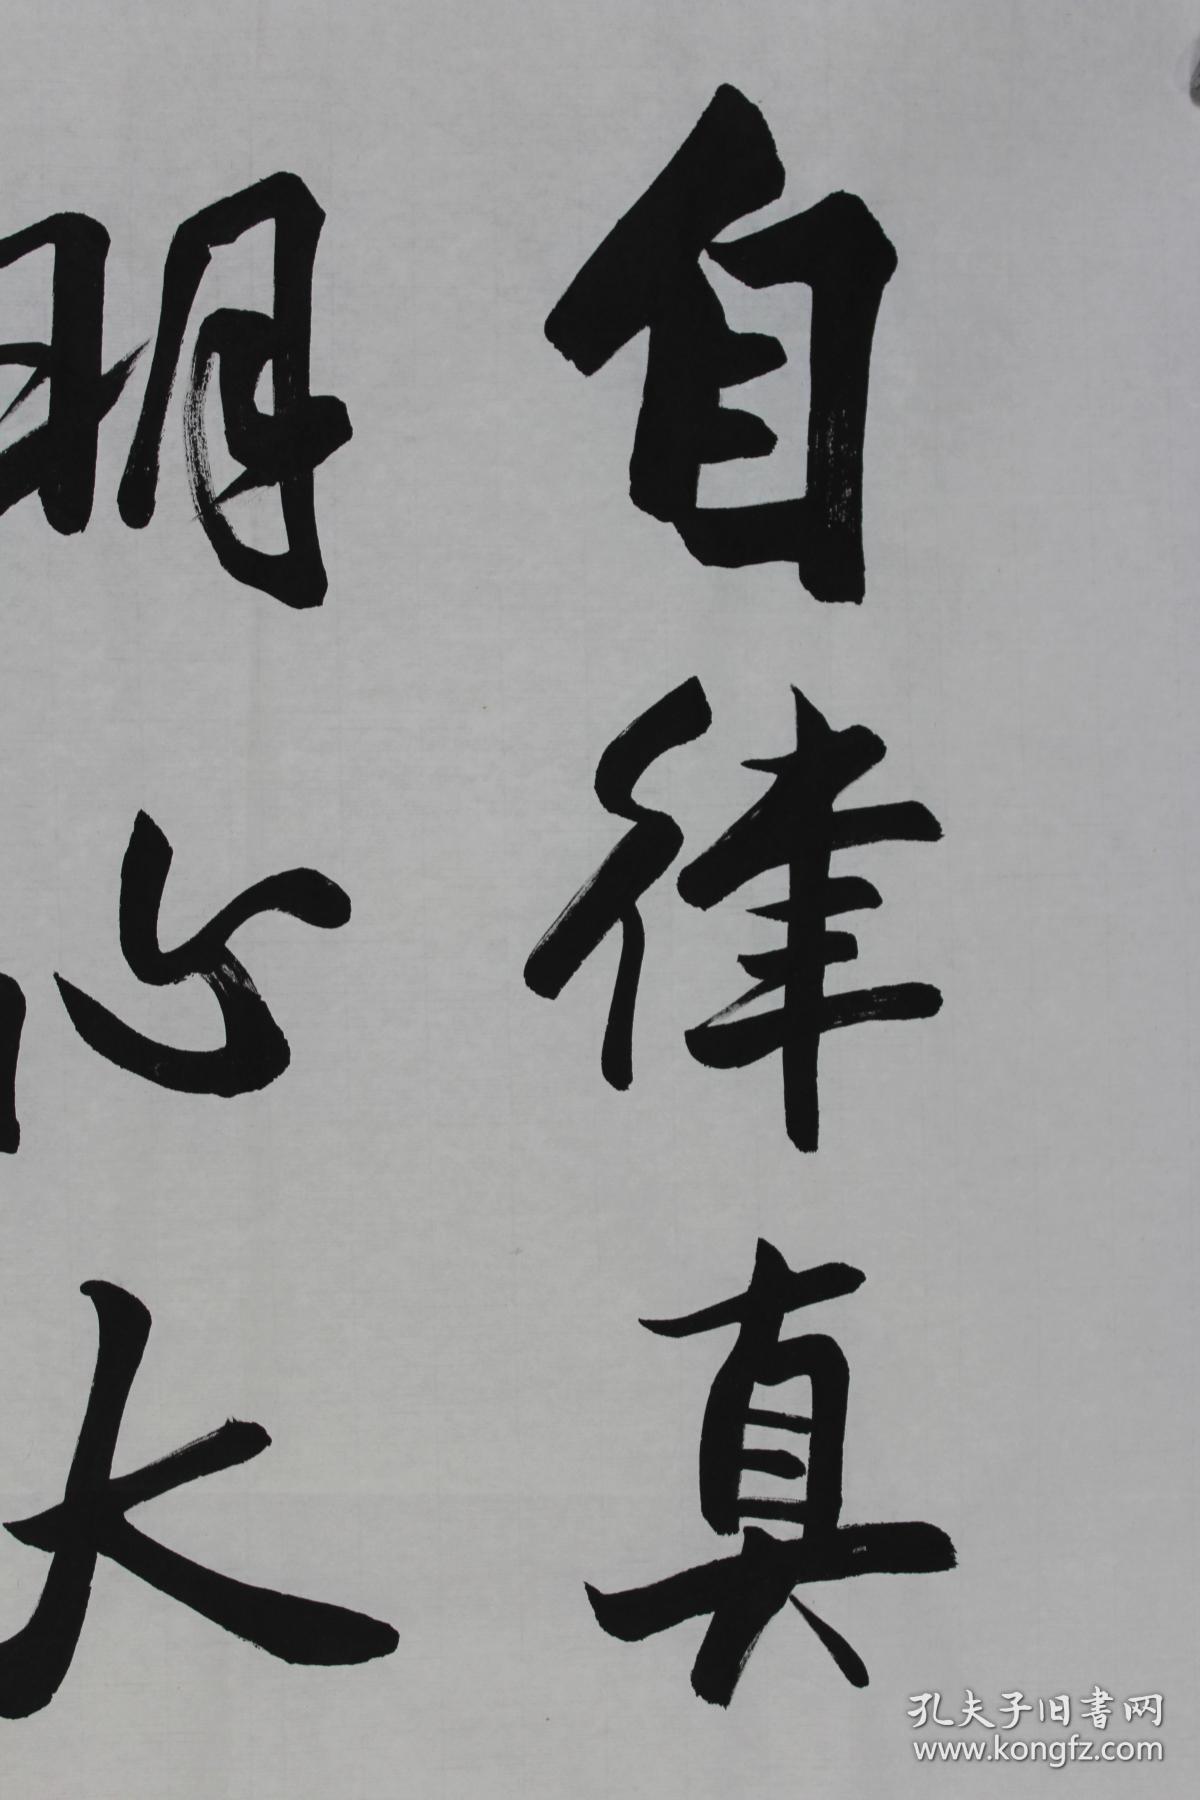 自律真
明心大
孔夫子旧书网
www.kongfz.com